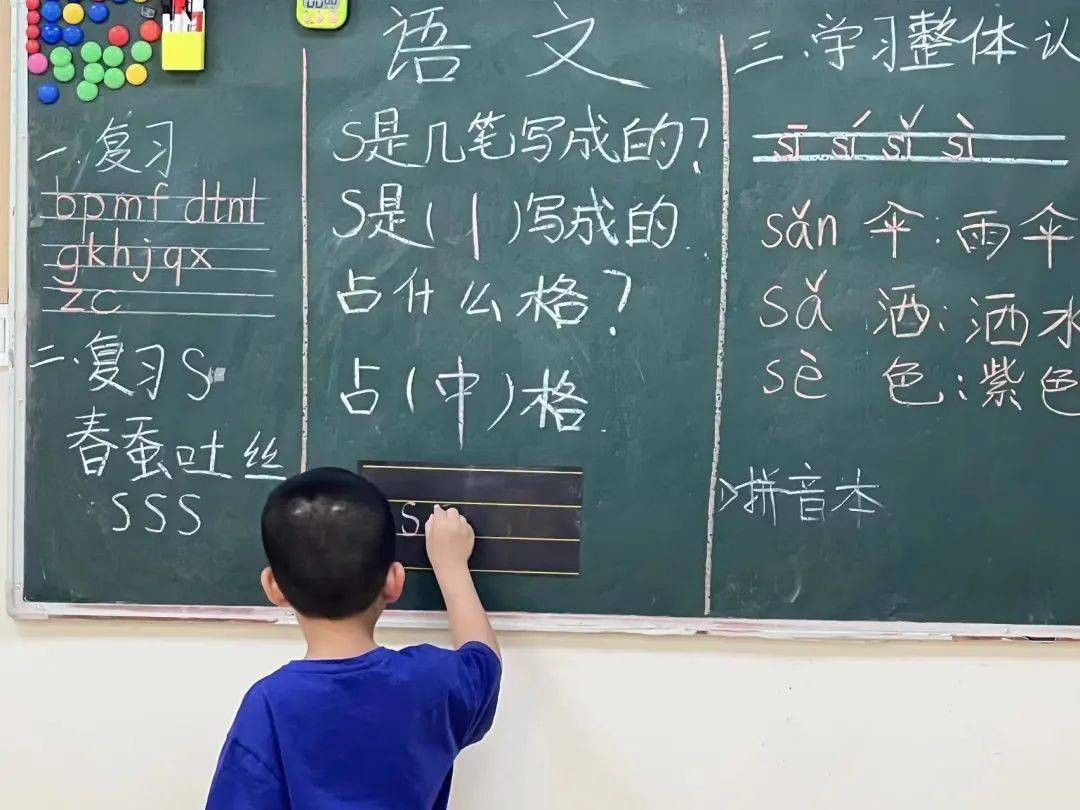 一.复习
bpmf dtnl
gkhjqx
zc
二.复习S
春蚕吐丝
sss
语文
S是几笔写成的?
S是(1)写成的
占什么格?
占(中)格
s
三.学习整体认
sī sí sǐ sì
sǎn 伞:雨伞
sǎ 洒:洒水
sè 色:紫色
拼音本